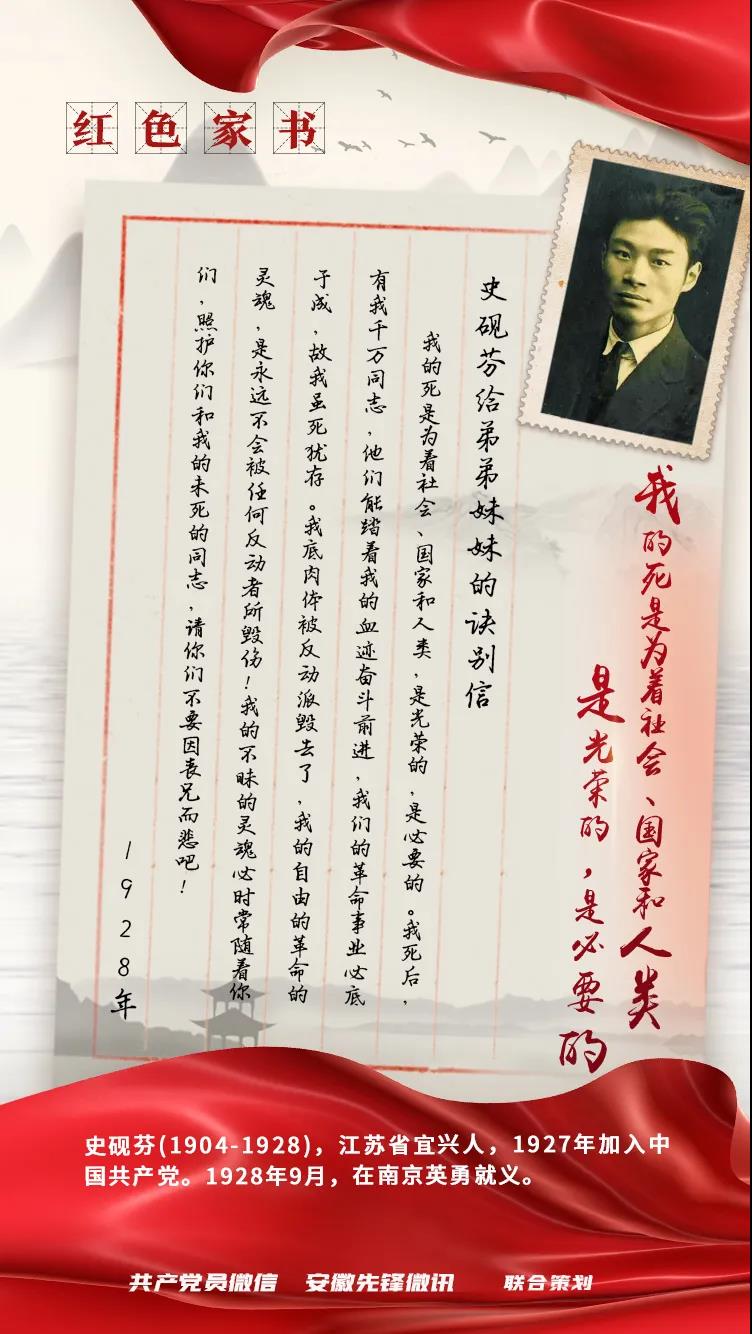 红色家书
史砚芬给弟弟妹妹的诀别信
我的死是为着社会、国家和人类，是光荣的，是必要的。我死后，
有我千万同志，他们能踏着我的血迹奋斗前进，我们的革命事业必底
于成，故我虽死犹存。我底肉体被反动派毁去了，我的自由的革命的
灵魂，是永远不会被任何反动者所毁伤！我的不昧的灵魂必时常随着你
们，照护你们和我的未死的同志，请你们不要因丧兄而悲吧！
1928年
我的死是为着社会、国家和人类
是光荣的，是必要的
史砚芬(1904-1928)，江苏省宜兴人，1927年加入中
国共产党。1928年9月，在南京英勇就义。
共产党员微信 安徽先锋微讯 联合策划